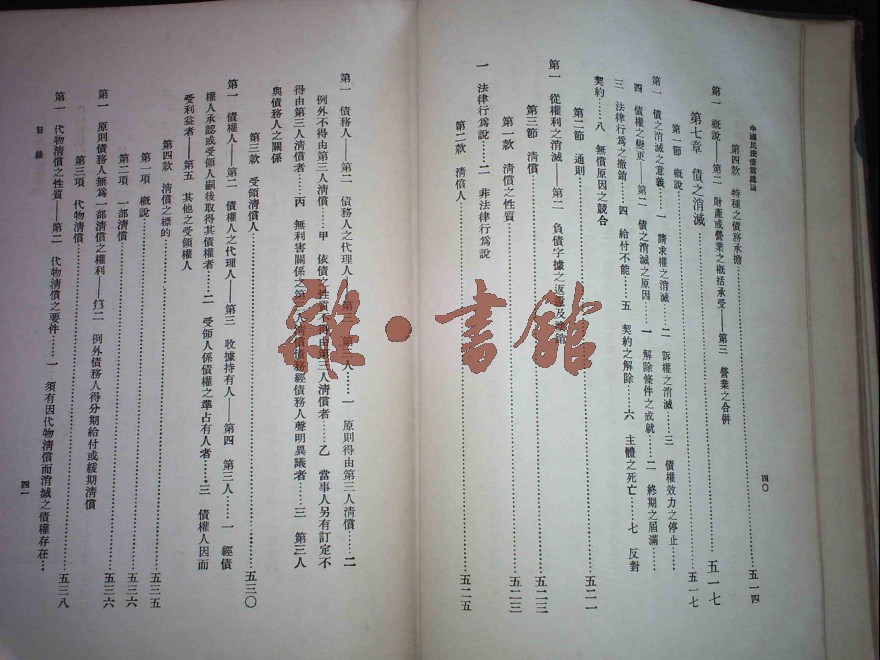 中國民法債篇總論
四〇
第四款 特種之債務承擔……五一四
第一 概説——第二 財產或營業之概括承受——第三 營業之合併
第七章 債之消滅……五一七
第一節 概説……五一七
第一 債之消滅之意義……一 請求權之消滅……二 訴權之消滅……三 債權效力之停止……
四 債權之變更——第二 債之消滅之原因……一 解除條件之成就……二 終期之屆滿……
三 法律行爲之撤銷……四 給付不能……五 契約之解除……六 主體之死亡……七 反對
契約……八 無償原因之競合
第二節 通則……五二一
第一 從權利之消滅——第二 負債字據之返還及塗銷
第三節 清償……五二三
第一款 清償之性質……五二三
一 法律行爲説……二 非法律行爲説
第二款 清償人……五二五
第一 債務人——第二 債務人之代理人——第三 第三人……一 原則得由第三人清償……二
例外不得由第三人清償……甲 依債之性質不得由第三人清償者……乙 當事人另有訂定不
得由第三人清償者……丙 無利害關係之第三人清償債務經債務人聲明異議者……三 第三人
與債務人之關係
第三款 受領清償人……五三〇
第一 債權人——第二 債權人之代理人——第三 收據持有人——第四 第三人……一 經債
權人承認或受領人嗣後取得其債權者……二 受領人係債權之準占有人者……三 債權人因而
受利益者——第五 其他之受領權人
第四款 清償之標的……五三五
第一項 概説……五三六
第二項 一部清償……五三六
第一 原則債務人無爲一部清償之權利——第二 例外債務人得分期給付或緩期清償
第三項 代物清償……五三八
第一 代物清償之性質——第二 代物清償之要件……一 須有因代物清償而消滅之債權存在…
目錄
四一
雜·書館